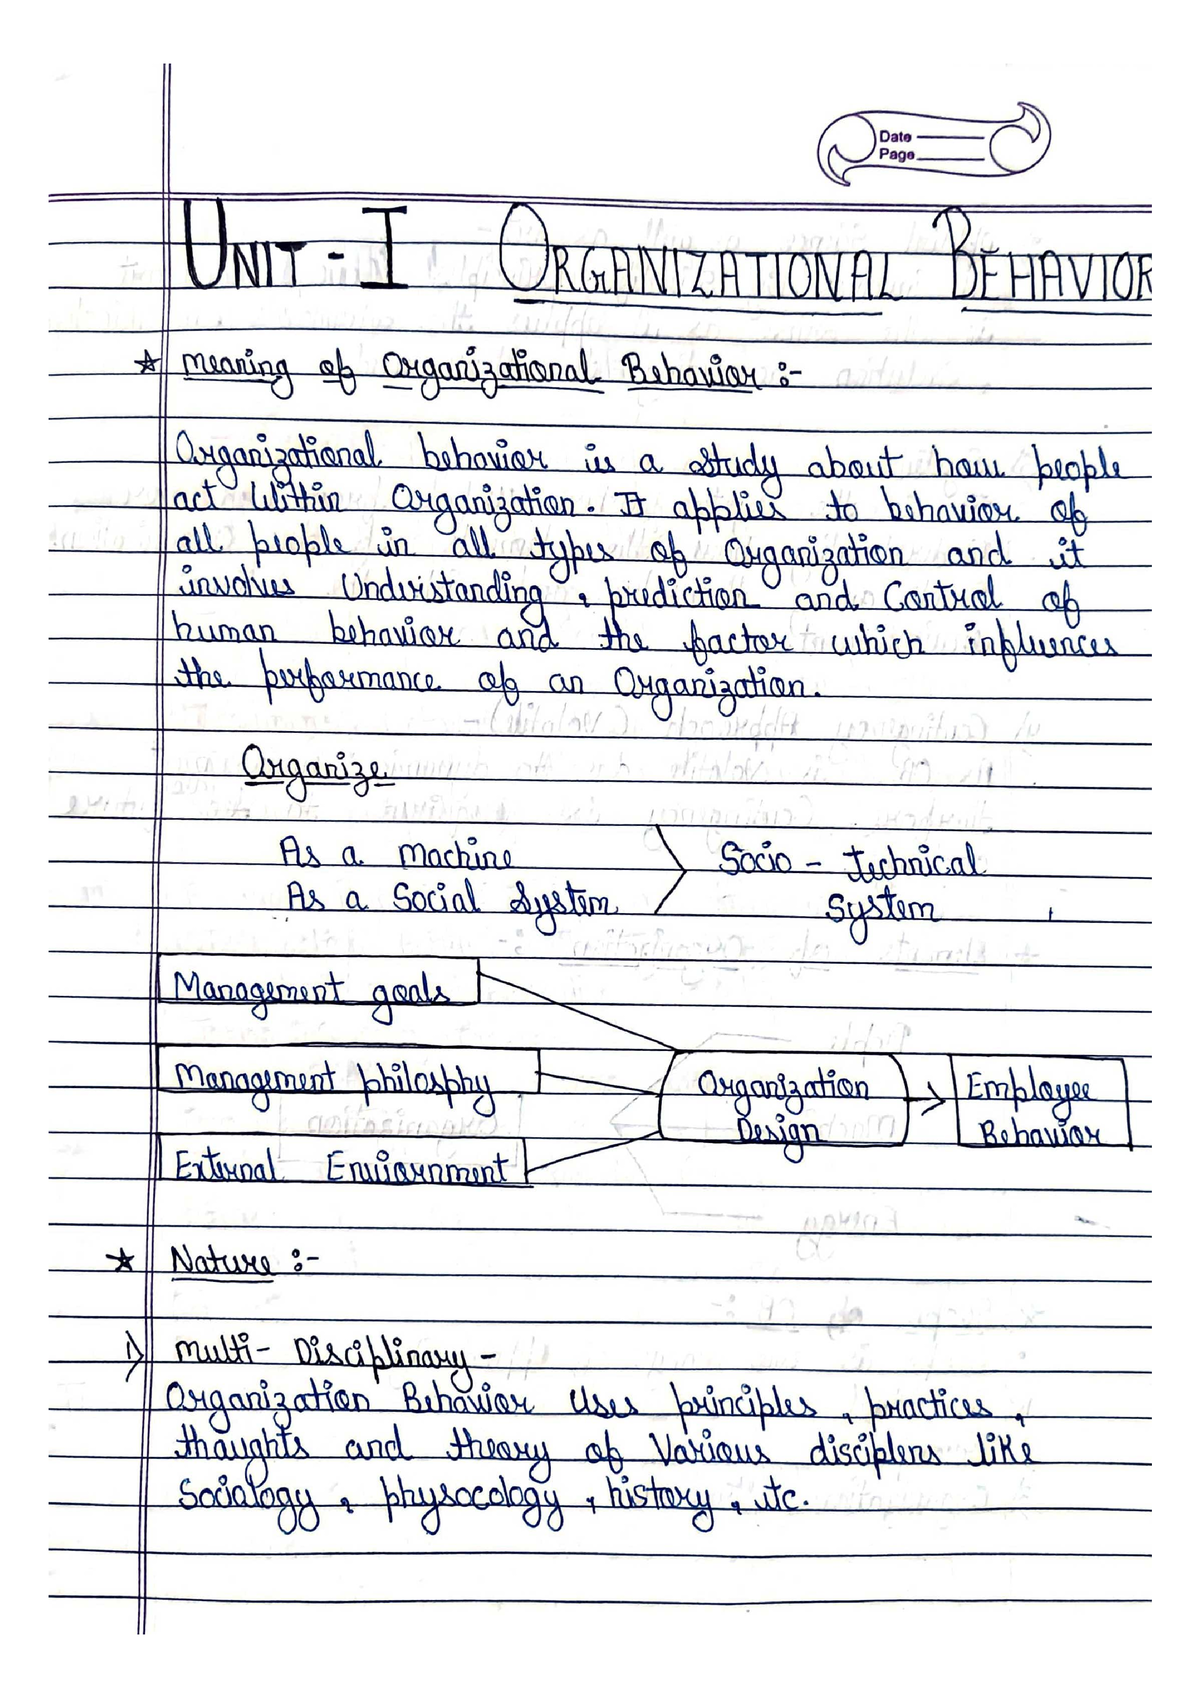 Date
Page
UNIT - I ORGANIZATIONAL BEHAVIOR
★ Meaning of Organizational Behavior :-
Organizational behavior is a study about how people
act within Organization. It applies to behavior of
all people in all types of Organization and it
involves Understanding, prediction and Control of
human behavior and the factor which influences
the performance of an Organization.
Organize
As a Machine
As a Social System
Socio - technical
System
Management goals
Management philosphy
External Enviornment
Organization
Design
Employee
Behavior
★ Nature :-
1) Multi - Disciplinary -
Organization Behavior Uses principles, practices,
thoughts and theory of Various disciplens like
Sociology, physocology, history, etc.